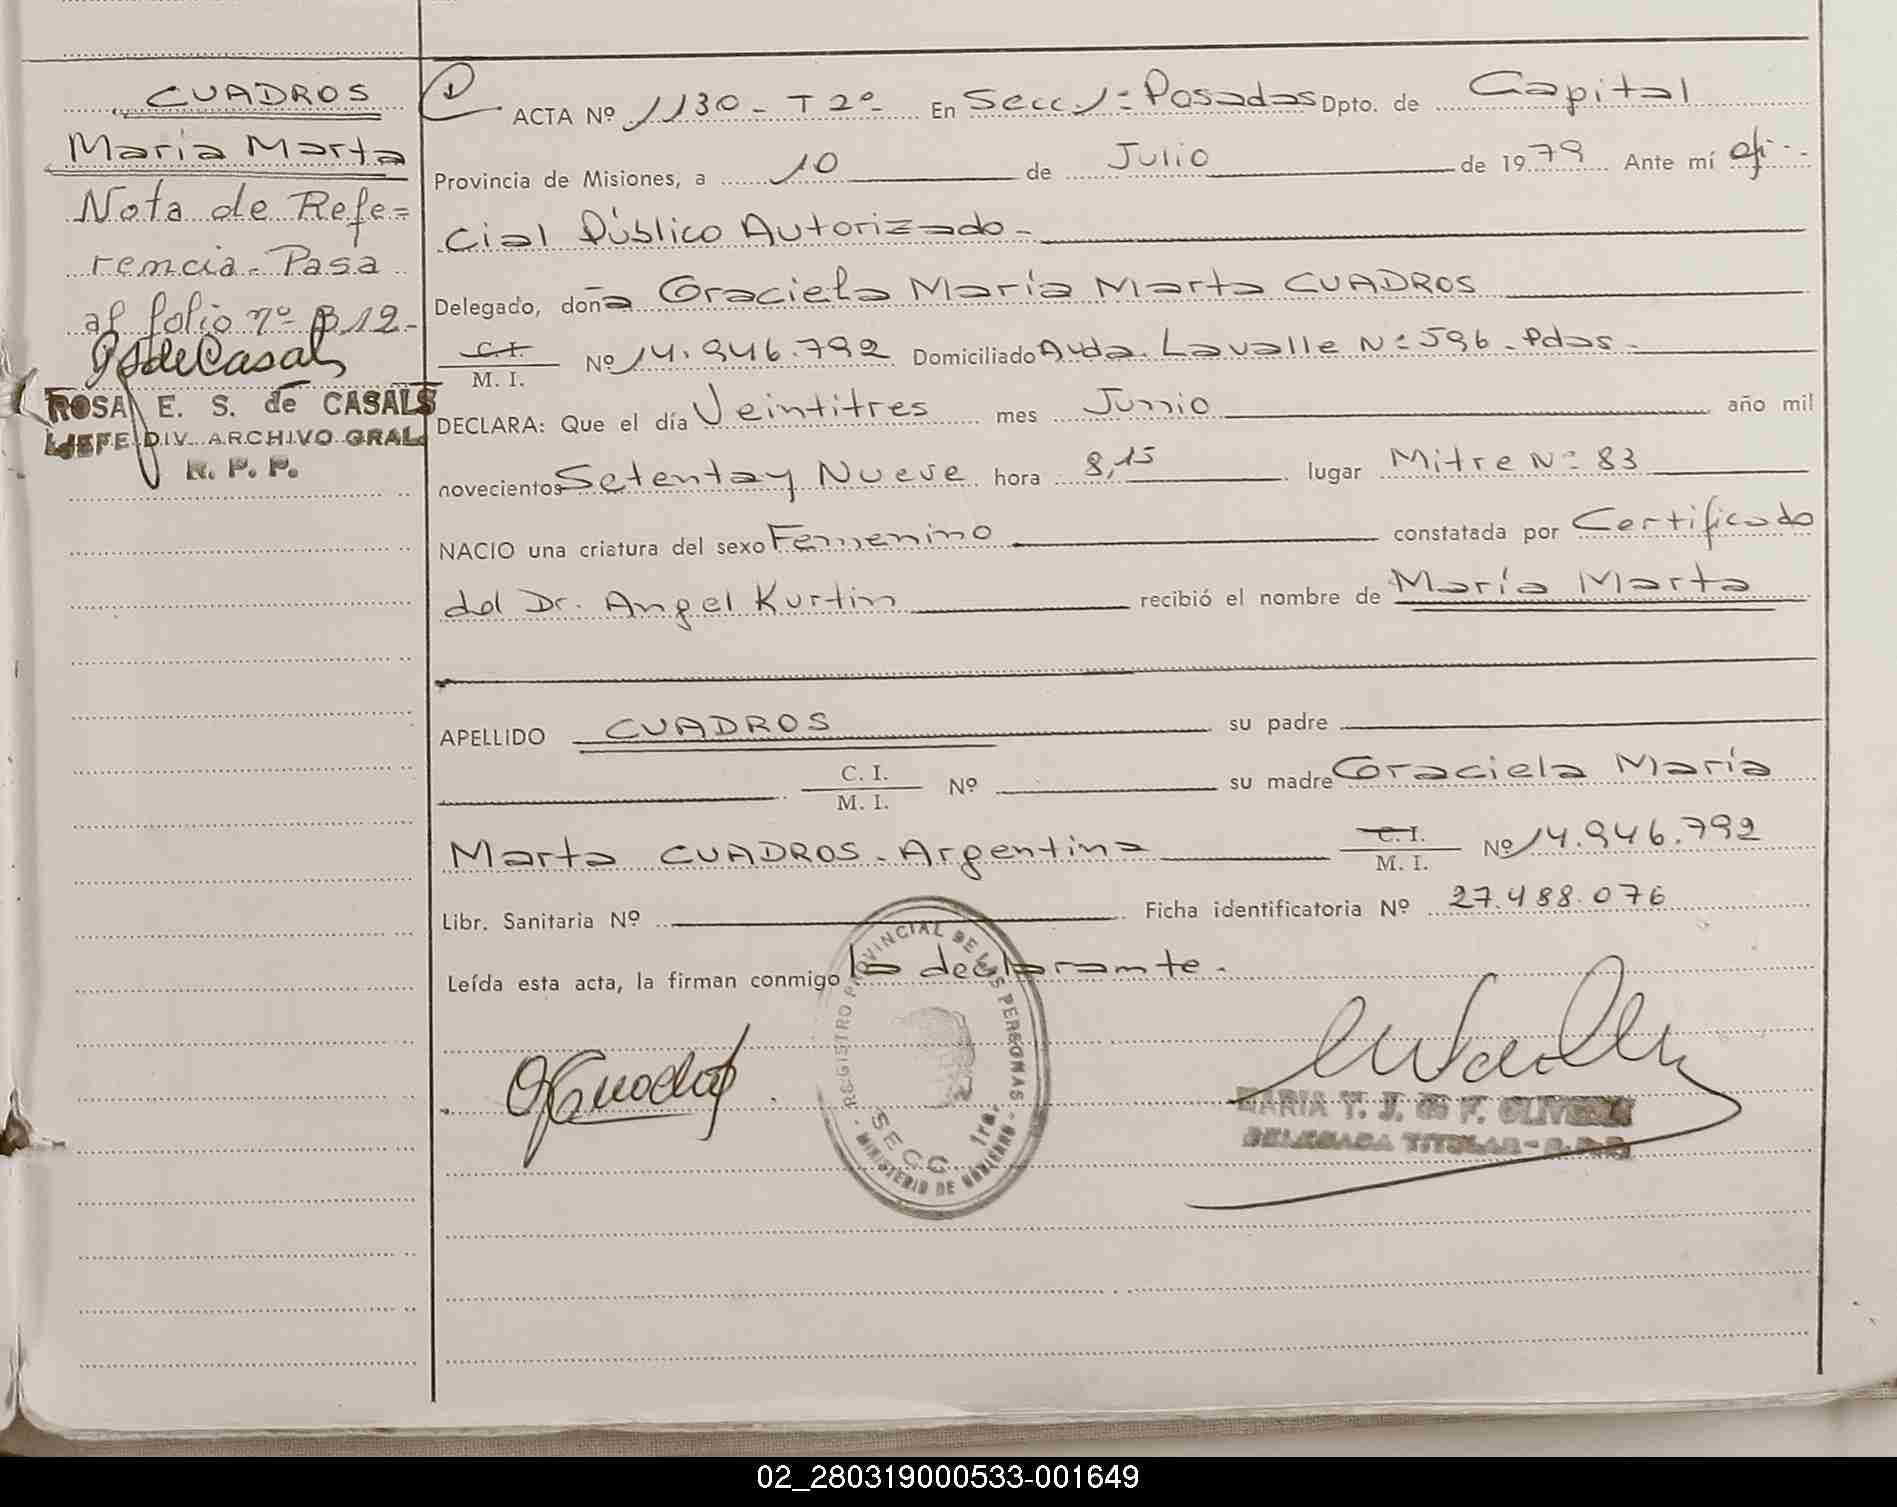 CUADROS
Maria Marta
Nota de Refe=
rencia. Pasa
al folio nº 312.-
RSdeCasals
ROSA E. S. de CASALS
JEFE DIV. ARCHIVO GRAL.
R. P. P.
ACTA Nº 1130 - T 2º - En Secc 1ª Posadas Dpto. de Capital
Provincia de Misiones, a 10 de Julio de 1979 Ante mí ofi-
cial Público Autorizado -
Delegado, doña Graciela María Marta CUADROS
C. I. / M. I. Nº 14.946.792 Domiciliado Avda. Lavalle Nº 596 - Pdas -
DECLARA: Que el día Veintitres mes Junio año mil
novecientos Setenta y Nueve hora 8,15 lugar Mitre Nº 83
NACIO una criatura del sexo Femenino constatada por Certificado
del Dr. Angel Kurtin recibió el nombre de María Marta
APELLIDO CUADROS su padre
C. I. / M. I. Nº su madre Graciela María
Marta CUADROS - Argentina C. I. / M. I. Nº 14.946.792
Libr. Sanitaria Nº Ficha identificatoria Nº 27.488.076
Leída esta acta, la firman conmigo la declarante.
REGISTRO PROVINCIAL DE LAS PERSONAS
SECC. 1ra.
- MINISTERIO DE GOBIERNO -
MARIA T. J. de F. OLIVERA
DELEGADA TITULAR - R.P.P.
02_280319000533-001649